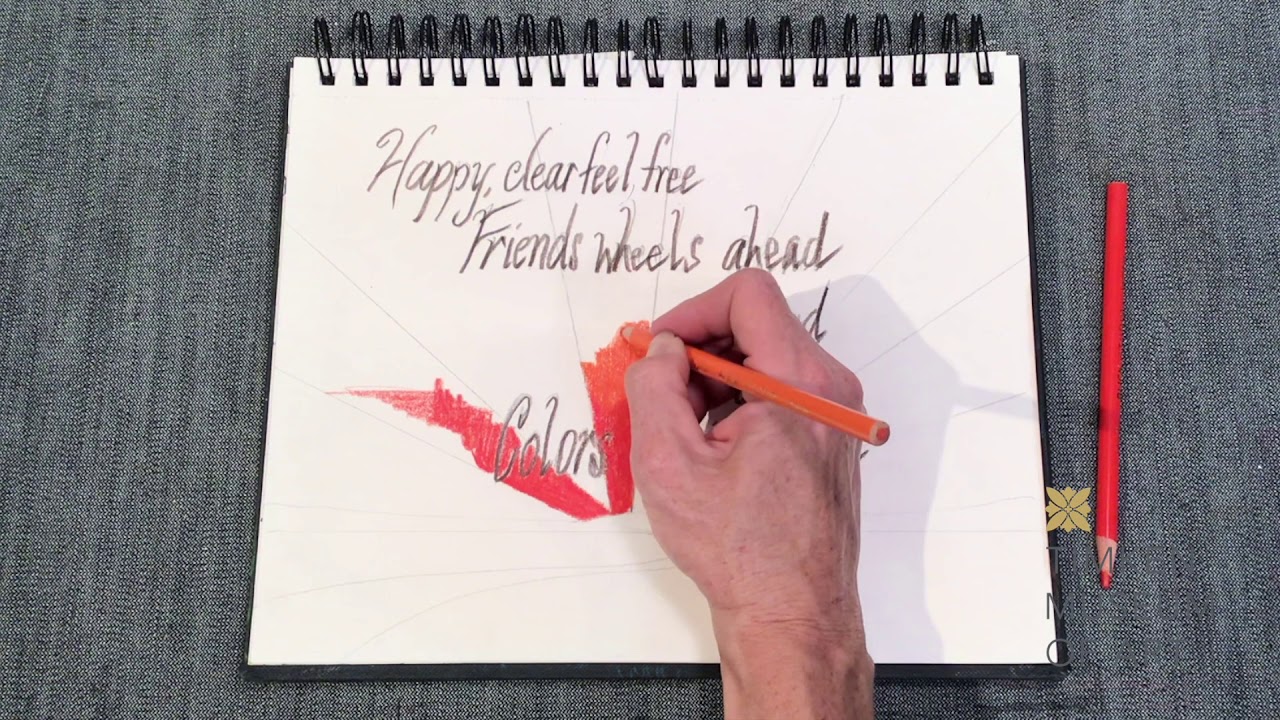 Happy, clear feel free
Friends wheels ahead
Colors
T M
M
C